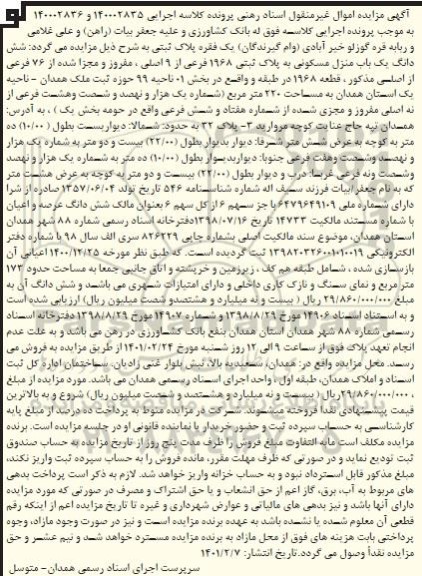 آگهی مزایده اموال غیرمنقول اسناد رهنی پرونده کلاسه اجرایی ۱۴۰۰۰۰۲۸۳۵ و ۱۴۰۰۰۰۲۸۳۶
به موجب پرونده اجرایی کلاسه فوق له بانک کشاورزی و علیه جعفر بیات (راهن) و علی غلامی
و ربابه قره گوزلو خیر آبادی (وام گیرندگان) یک فقره پلاک ثبتی به شرح ذیل مزایده می گردد: شش
دانگ یک باب منزل مسکونی به پلاک ثبتی ۱۹۶۸ فرعی از ۹ اصلی ، مفروز و مجزا شده از ۷۶ فرعی
از اصلی مذکور ، قطعه ۱۹۶۸ در طبقه و واقع در بخش ۰۱ ناحیه ۹۹ حوزه ثبت ملک همدان - ناحیه
یک استان همدان به مساحت ۲۲۰ متر مربع (شماره یک هزار و نهصد و شصت وهشت فرعی از
نه اصلی مفروز و مجزی شده از شماره هفتاد و شش فرعی واقع در حومه بخش یک ) ، به آدرس:
همدان تپه حاج عنایت کوچه مروارید ۳- پلاک ۳۲ به حدود: شمالا: دیواریست بطول (۱۰/۰۰) ده
متر به کوچه به عرض شش متر شرقا: دیوار بدیوار بطول (۲۲/۰۰) بیست و دو متر به شماره یک هزار
و نهصد وشصت وهفت فرعی جنوبا: دیواربدیوار بطول (۱۰/۰۰) ده متر به شماره یک هزار و نهصد
وشصت ونه فرعی غربا: درب و دیوار بطول (۲۲/۰۰) بیست و دو متر به کوچه به عرض هشت متر
که به نام جعفر بیات فرزند سیف اله شماره شناسنامه ۵۴۶ تاریخ تولد ۱۳۵۷/۰۶/۰۴ صادره از شرا
دارای شماره ملی ۶۴۷۹۶۴۹۱۰۹ با جز سهم ۶ از کل سهم ۶ بعنوان مالک شش دانگ عرصه و اعیان
با شماره مستند مالکیت ۱۴۷۳۳ تاریخ ۱۳۹۸/۰۷/۱۶ دفترخانه اسناد رسمی شماره ۸۸ شهر همدان
استان همدان، موضوع سند مالکیت اصلی بشماره چاپی ۸۲۶۲۲۹ سری الف سال ۹۸ با شماره دفتر
الکترونیکی ۱۳۹۸۲۰۳۲۶۰۰۱۰۱۰۰۱۹ ثبت گردیده است. که طبق نظر مورخه ۱۴۰۰/۱۲/۲۵ اعیانی آن
بازسازی شده ، شامل طبقه هم کف ، زیرزمین و خرپشته و اتاق جانبی جمعا به مساحت حدود ۱۷۳
متر مربع و نمای سنگ و نازک کاری داخلی و دارای امتیازات شهری می باشد و شش دانگ آن به
مبلغ ۲۹/۸۶۰/۰۰۰/۰۰۰ ریال ( بیست و نه میلیارد و هشتصدو شصت میلیون ریال) ارزیابی شده است
و به استناد اسناد ۱۴۹۰۶ مورخ ۱۳۹۸/۸/۲۹ و شماره ۱۴۹۰۷ مورخ ۱۳۹۸/۸/۲۹ دفترخانه اسناد
رسمی شماره ۸۸ شهر همدان استان همدان بنفع بانک کشاورزی در رهن می باشد و به علت عدم
انجام تعهد پلاک فوق از ساعت ۹ الی ۱۲ روز شنبه مورخ ۱۴۰۱/۰۲/۲۴ از طریق مزایده به فروش می
رسد. محل مزایده واقع در: همدان، سعیدیه بالا، نبش بلوار غنی زادیان، ساختمان اداره کل ثبت
اسناد و املاک همدان، طبقه اول ، واحد اجرای اسناد رسمی همدان می باشد. مورد مزایده از مبلغ
۲۹/۸۶۰/۰۰۰/۰۰۰ ریال (بیست و نه میلیارد و هشتصد و شصت میلیون ریال) شروع و به بالاترین
قیمت پیشنهادی نقدا فروخته میشوند شرکت در مزایده منوط به پرداخت ده درصد از مبلغ پایه
کارشناسی به حساب سپرده ثبت و حضور خریدار یا نماینده قانونی او در جلسه مزایده است. برنده
مزایده مکلف است مابه التفاوت مبلغ فروش را ظرف مدت پنج روز از تاریخ مزایده به حساب صندوق
ثبت تودیع نماید و در صورتی که ظرف مهلت مقرر، مانده فروش را به حساب سپرده ثبت واریز نکند،
مبلغ مذکور قابل استرداد نبود و به حساب خزانه واریز خواهد شد. لازم به ذکر است پرداخت بدهی
های مربوط به آب، برق، گاز اعم از حق انشعاب و یا حق اشتراک و مصرف در صورتی که مورد مزایده
دارای آنها باشد و نیز بدهی های مالیاتی و عوارض شهرداری و غیره تا تاریخ مزایده اعم از اینکه رقم
قطعی آن معلوم شده یا نشده باشد به عهده برنده مزایده است و نیز در صورت وجود مازاد، وجوه
پرداختی بابت هزینه های فوق از محل مازاد به برنده مزایده مسترد خواهد شد و نیم عشر و حق
مزایده نقداً وصول می گردد. تاریخ انتشار: ۱۴۰۱/۲/۷
سرپرست اجرای اسناد رسمی همدان- متوسل